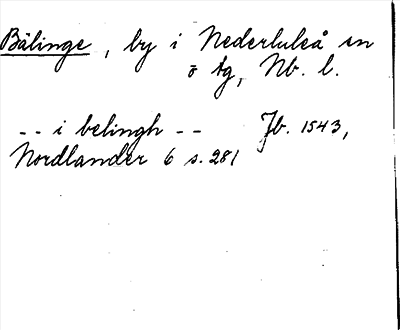 Bälinge, by i Nederluleå sn
o tg, Nb. l.
-- i belingh -- Jb. 1543,
Nordlander 6 s. 281